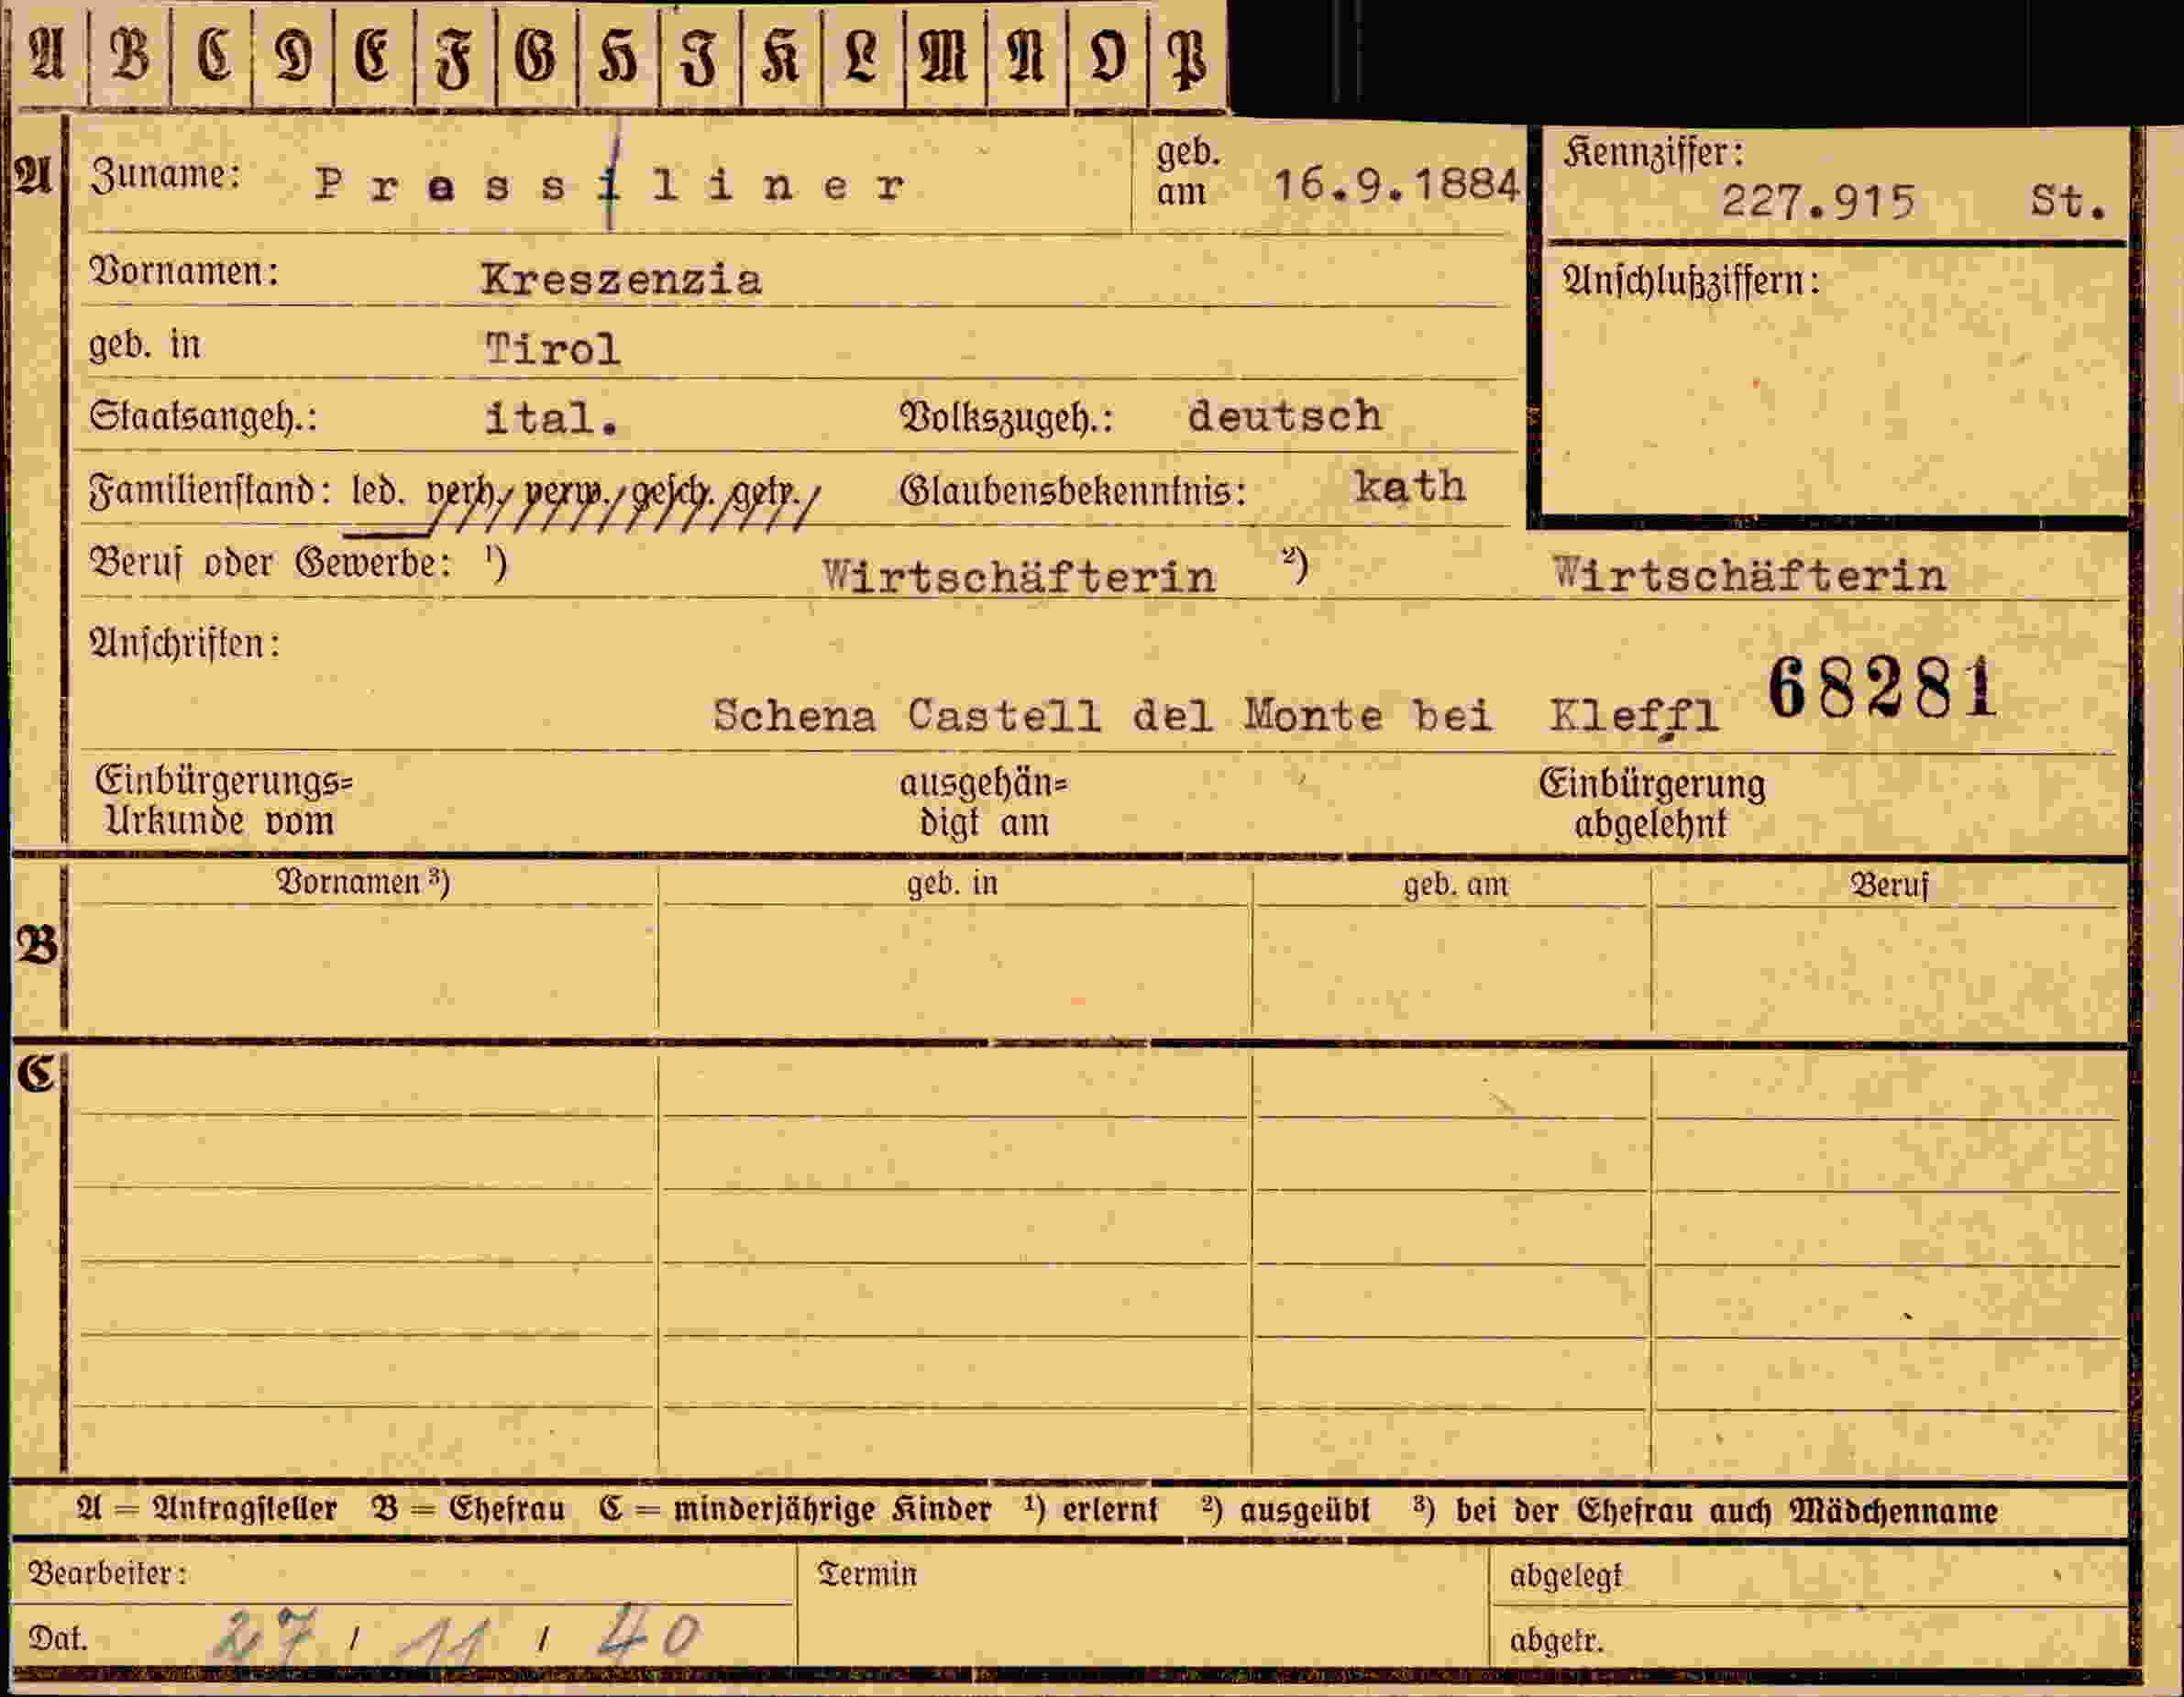 A B C D E F G H I K L M N O P
A Zuname: Pressiliner geb. am 16.9.1884 Kennziffer: 227.915 St.
Vornamen: Kreszenzia Anschlußziffern:
geb. in Tirol
Staatsangeh.: ital. Volkszugeh.: deutsch
Familienstand: led. verh. verw. gesch. getr. Glaubensbekenntnis: kath
Beruf oder Gewerbe: ¹) Wirtschäfterin ²) Wirtschäfterin
Anschriften:
Schena Castell del Monte bei Kleffl 68281
Einbürgerungs= ausgehän= Einbürgerung
Urkunde vom digt am abgelehnt
Vornamen ³) geb. in geb. am Beruf
B
C
A = Antragsteller B = Ehefrau C = minderjährige Kinder ¹) erlernt ²) ausgeübt ³) bei der Ehefrau auch Mädchenname
Bearbeiter: Termin abgelegt
Dat. 27 / 11 / 40 abgetr.